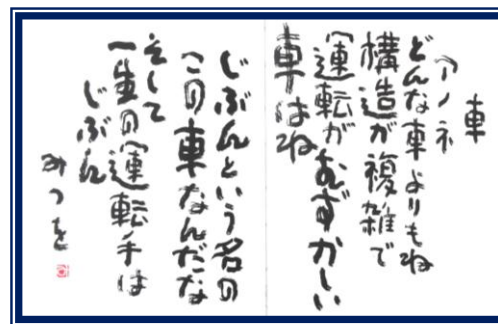 車
アノネ
どんな車よりもね
構造が複雑で
運転がむずかしい
車はね
じぶんという名の
この車なんだな
そして
一生の運転手は
じぶん
みつを